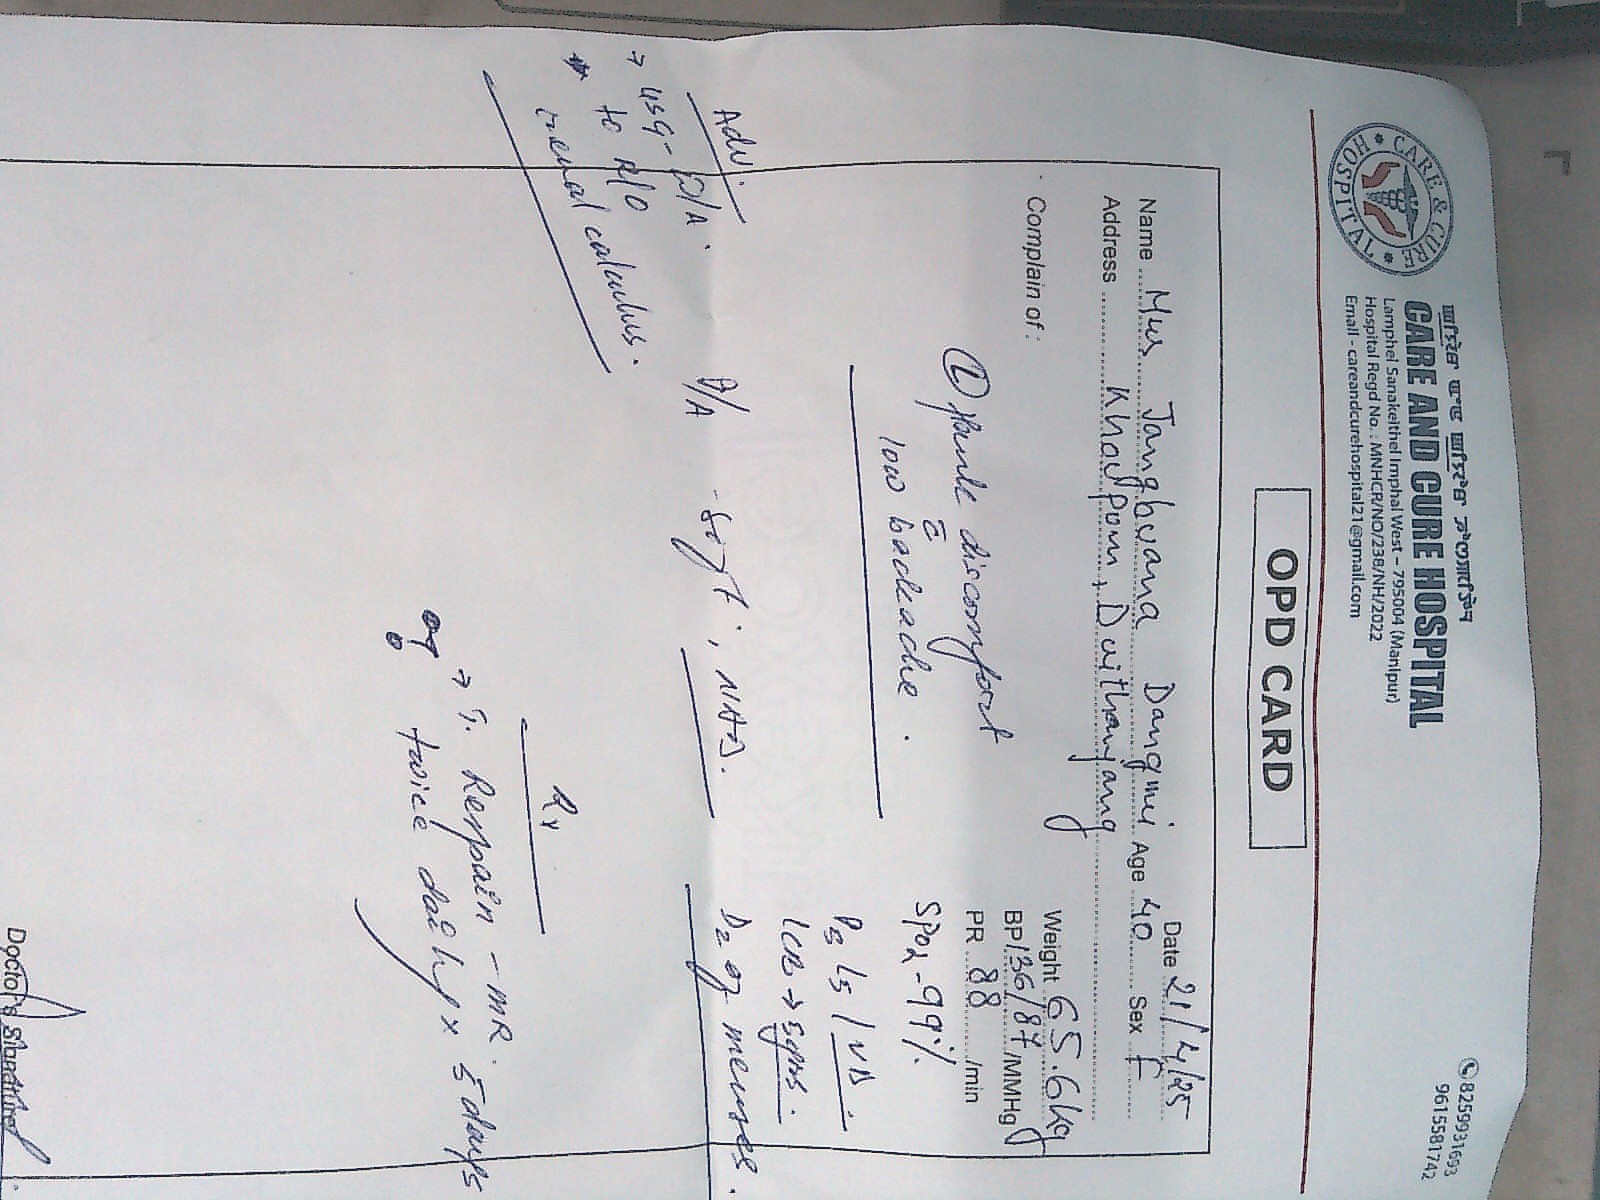 CARE & CURE
HOSPITAL
CARE AND CURE HOSPITAL
Lamphel Sanakeithel Imphal West – 795004 (Manipur)
Hospital Regd No. : MNHCR/NO/238/NH/2022
Email - careandcurehospital21@gmail.com
8259931693
9615581742
OPD CARD
Date 21/4/25
Name Mrs Jangbwana Dangmei Age 40 Sex F
Address Khoupom, Duithanjang
Weight 65.6kg
Complain of :
BP 136/87 /MMHg
PR 88 /min
SPO2 - 99%
(L) flank discomfort
c̄
low backache.
P3 L3 / VD.
LCB → 5yrs.
Adv.
P/A - soft, NAD.
D2 of menses.
→ USG - P/A.
to R/O
renal calculus.
Rx
→ T. Renpain - MR.
twice daily x 5 days
Doctor's Signature